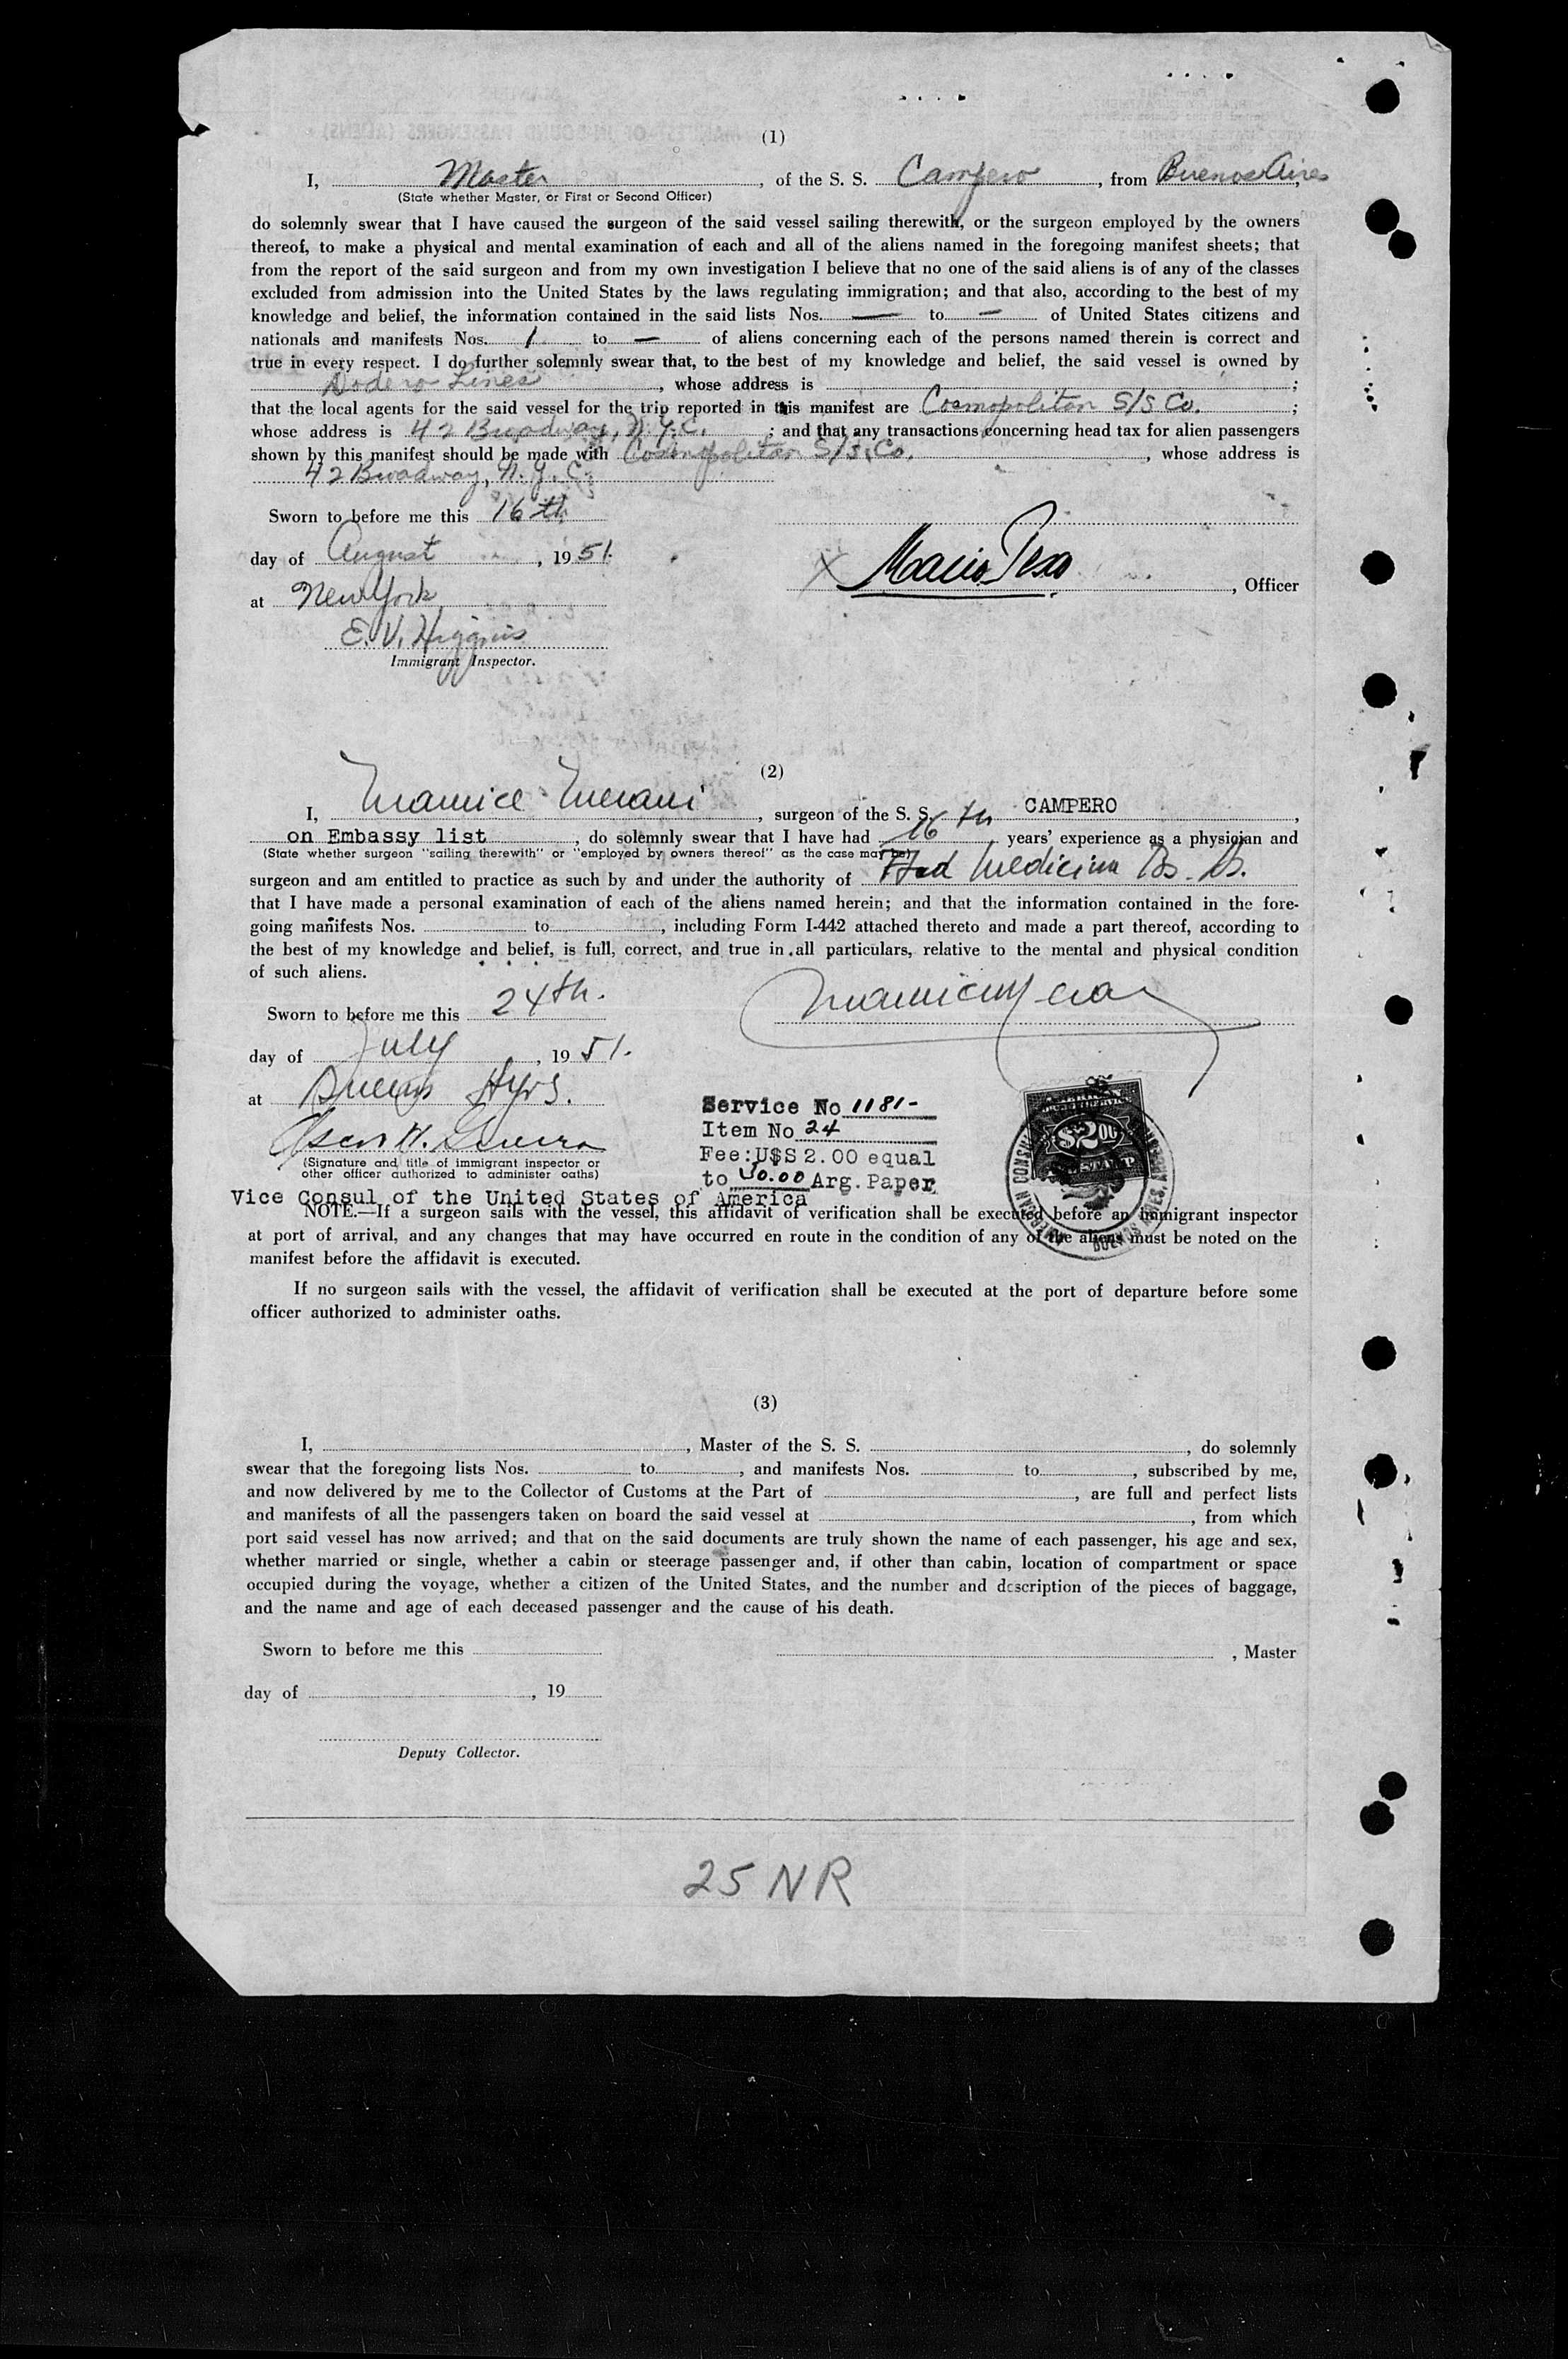 (1)
I, Master, of the S. S. Campero, from Buenos Aires
(State whether Master, or First or Second Officer)
do solemnly swear that I have caused the surgeon of the said vessel sailing therewith, or the surgeon employed by the owners
thereof, to make a physical and mental examination of each and all of the aliens named in the foregoing manifest sheets; that
from the report of the said surgeon and from my own investigation I believe that no one of the said aliens is of any of the classes
excluded from admission into the United States by the laws regulating immigration; and that also, according to the best of my
knowledge and belief, the information contained in the said lists Nos. — to — of United States citizens and
nationals and manifests Nos. 1 to — of aliens concerning each of the persons named therein is correct and
true in every respect. I do further solemnly swear that, to the best of my knowledge and belief, the said vessel is owned by
Dodero Lines, whose address is ;
that the local agents for the said vessel for the trip reported in this manifest are Cosmopolitan S/S Co. ;
whose address is 42 Broadway, N.Y.C. ; and that any transactions concerning head tax for alien passengers
shown by this manifest should be made with Cosmopolitan S/S. Co. , whose address is
42 Broadway, N.Y.C.
Sworn to before me this 16th
day of August, 1951.
X Officer
at New York
E. V. Higgins
Immigrant Inspector.
(2)
I, , surgeon of the S. S. CAMPERO ,
on Embassy list , do solemnly swear that I have had 16 th years' experience as a physician and
(State whether surgeon "sailing therewith" or "employed by owners thereof" as the case may be)
surgeon and am entitled to practice as such by and under the authority of Medicina Bs. As.
that I have made a personal examination of each of the aliens named herein; and that the information contained in the fore-
going manifests Nos. to , including Form I-442 attached thereto and made a part thereof, according to
the best of my knowledge and belief, is full, correct, and true in all particulars, relative to the mental and physical condition
of such aliens.
Sworn to before me this 24th.
day of July, 1951.
at Buenos Ayrs.
Service No 1181-
Item No 24
Fee: U$S 2.00 equal
to Arg. Paper
$2.00
(Signature and title of immigrant inspector or
other officer authorized to administer oaths)
Vice Consul of the United States of America
NOTE.—If a surgeon sails with the vessel, this affidavit of verification shall be executed before an immigrant inspector
at port of arrival, and any changes that may have occurred en route in the condition of any of the aliens must be noted on the
manifest before the affidavit is executed.
If no surgeon sails with the vessel, the affidavit of verification shall be executed at the port of departure before some
officer authorized to administer oaths.
(3)
I, , Master of the S. S. , do solemnly
swear that the foregoing lists Nos. to , and manifests Nos. to , subscribed by me,
and now delivered by me to the Collector of Customs at the Part of , are full and perfect lists
and manifests of all the passengers taken on board the said vessel at , from which
port said vessel has now arrived; and that on the said documents are truly shown the name of each passenger, his age and sex,
whether married or single, whether a cabin or steerage passenger and, if other than cabin, location of compartment or space
occupied during the voyage, whether a citizen of the United States, and the number and description of the pieces of baggage,
and the name and age of each deceased passenger and the cause of his death.
Sworn to before me this , Master
day of , 19
Deputy Collector.
25 NR